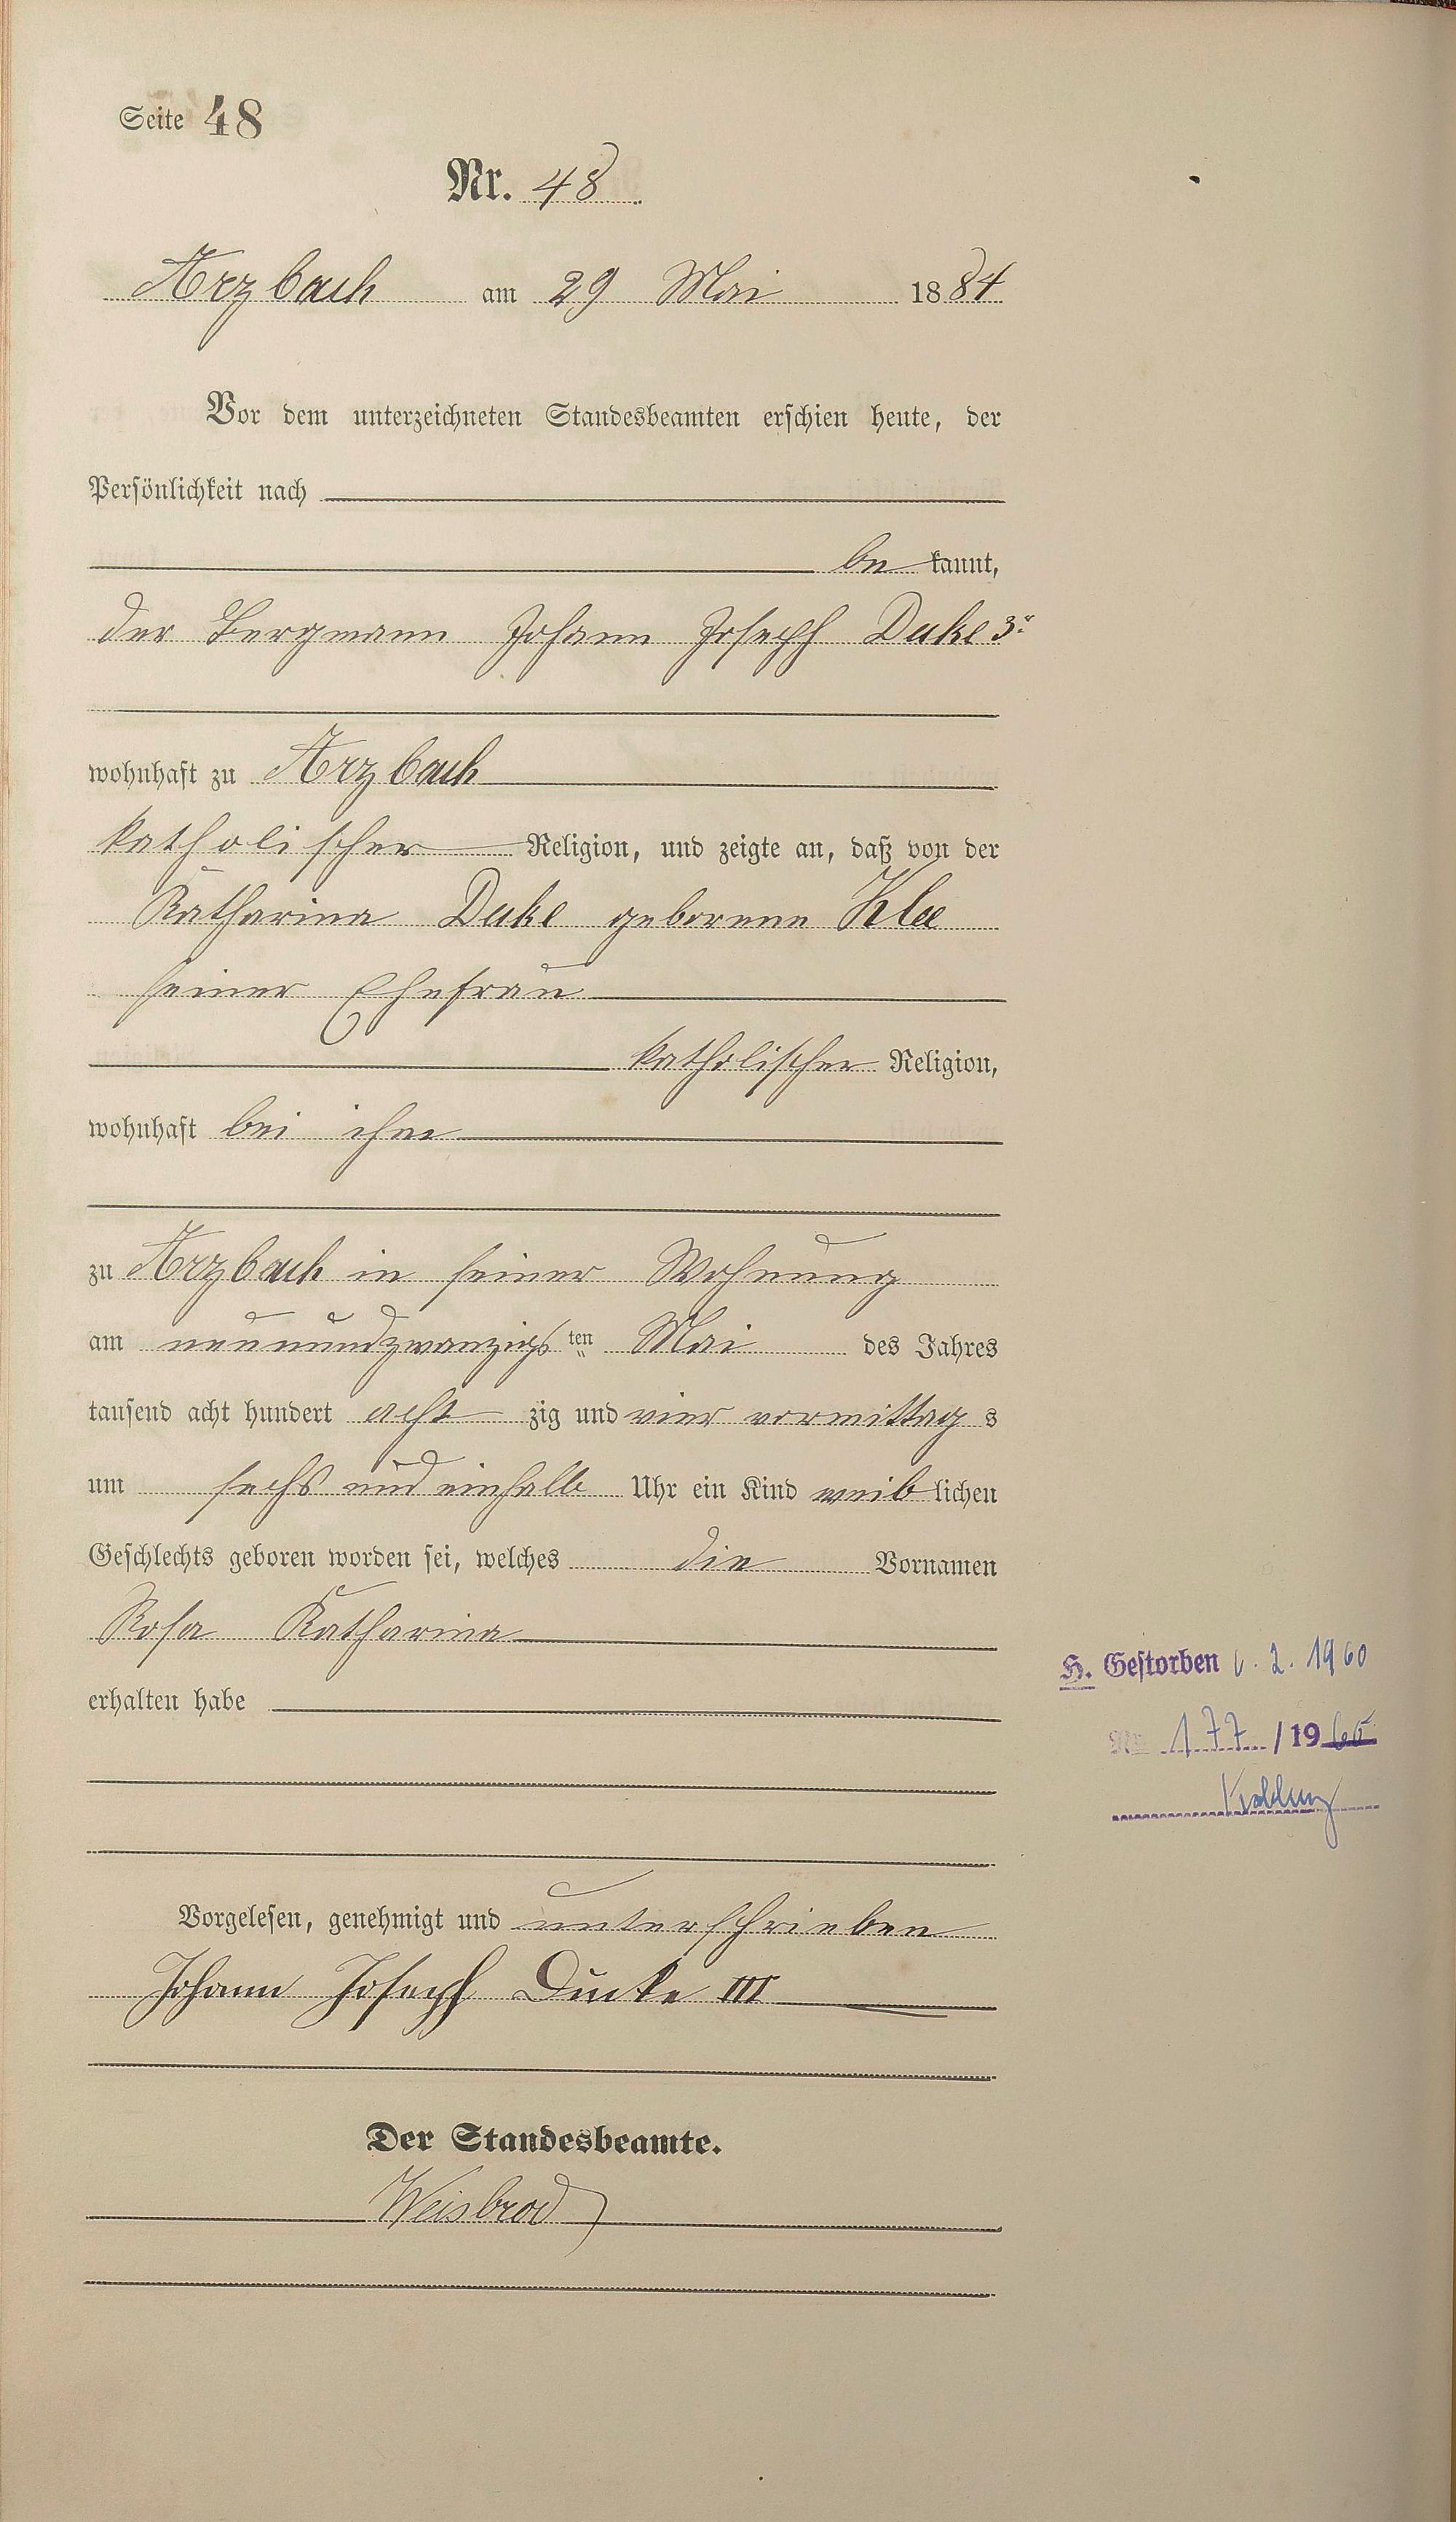 Seite 48
Nr. 48
Arzbach am 29 Mai 1884
Vor dem unterzeichneten Standesbeamten erschien heute, der
Persönlichkeit nach
be kannt,
der Bergmann Johann Joseph Duke 3r
wohnhaft zu Arzbach
katholischer Religion, und zeigte an, daß von der
Katharina Duke geborene Klee
seiner Ehefrau
katholischer Religion,
wohnhaft bei ihm
zu Arzbach in seiner Wohnung
am neunundzwanzigs ten Mai des Jahres
tausend acht hundert acht zig und vier vormittag s
um sechs und einhalb Uhr ein Kind weib lichen
Geschlechts geboren worden sei, welches die Vornamen
Rosa Katharina
erhalten habe
H. Gestorben 6. 2. 1960
Nr. 177 /1960
Vorgelesen, genehmigt und unterschrieben
Johann Joseph Ducke III
Der Standesbeamte.
Weisbrod